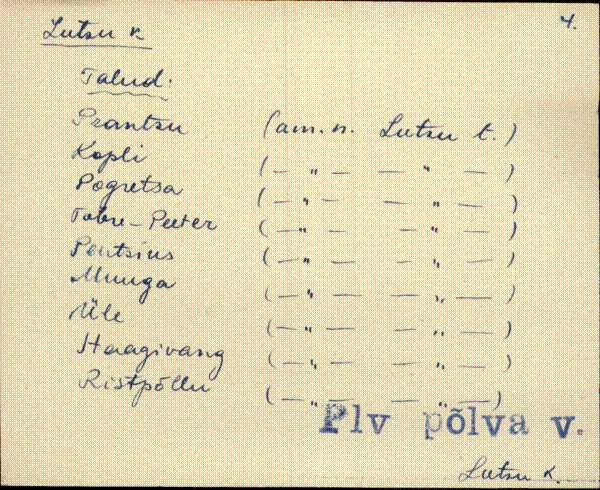 Lutsu k.
4.
Talud.
Prantsu (am. n. Lutsu t.)
Kopli (— „ — — „ —)
Pogretsa (— „ — — „ —)
Tabre-Peeter (— „ — — „ —)
Pentsius (— „ — — „ —)
Muuga (— „ — — „ —)
Üle (— „ — — „ —)
Haagivang (— „ — — „ —)
Ristpõllu (— „ — — „ —)
Plv põlva v.
Lutsu k.